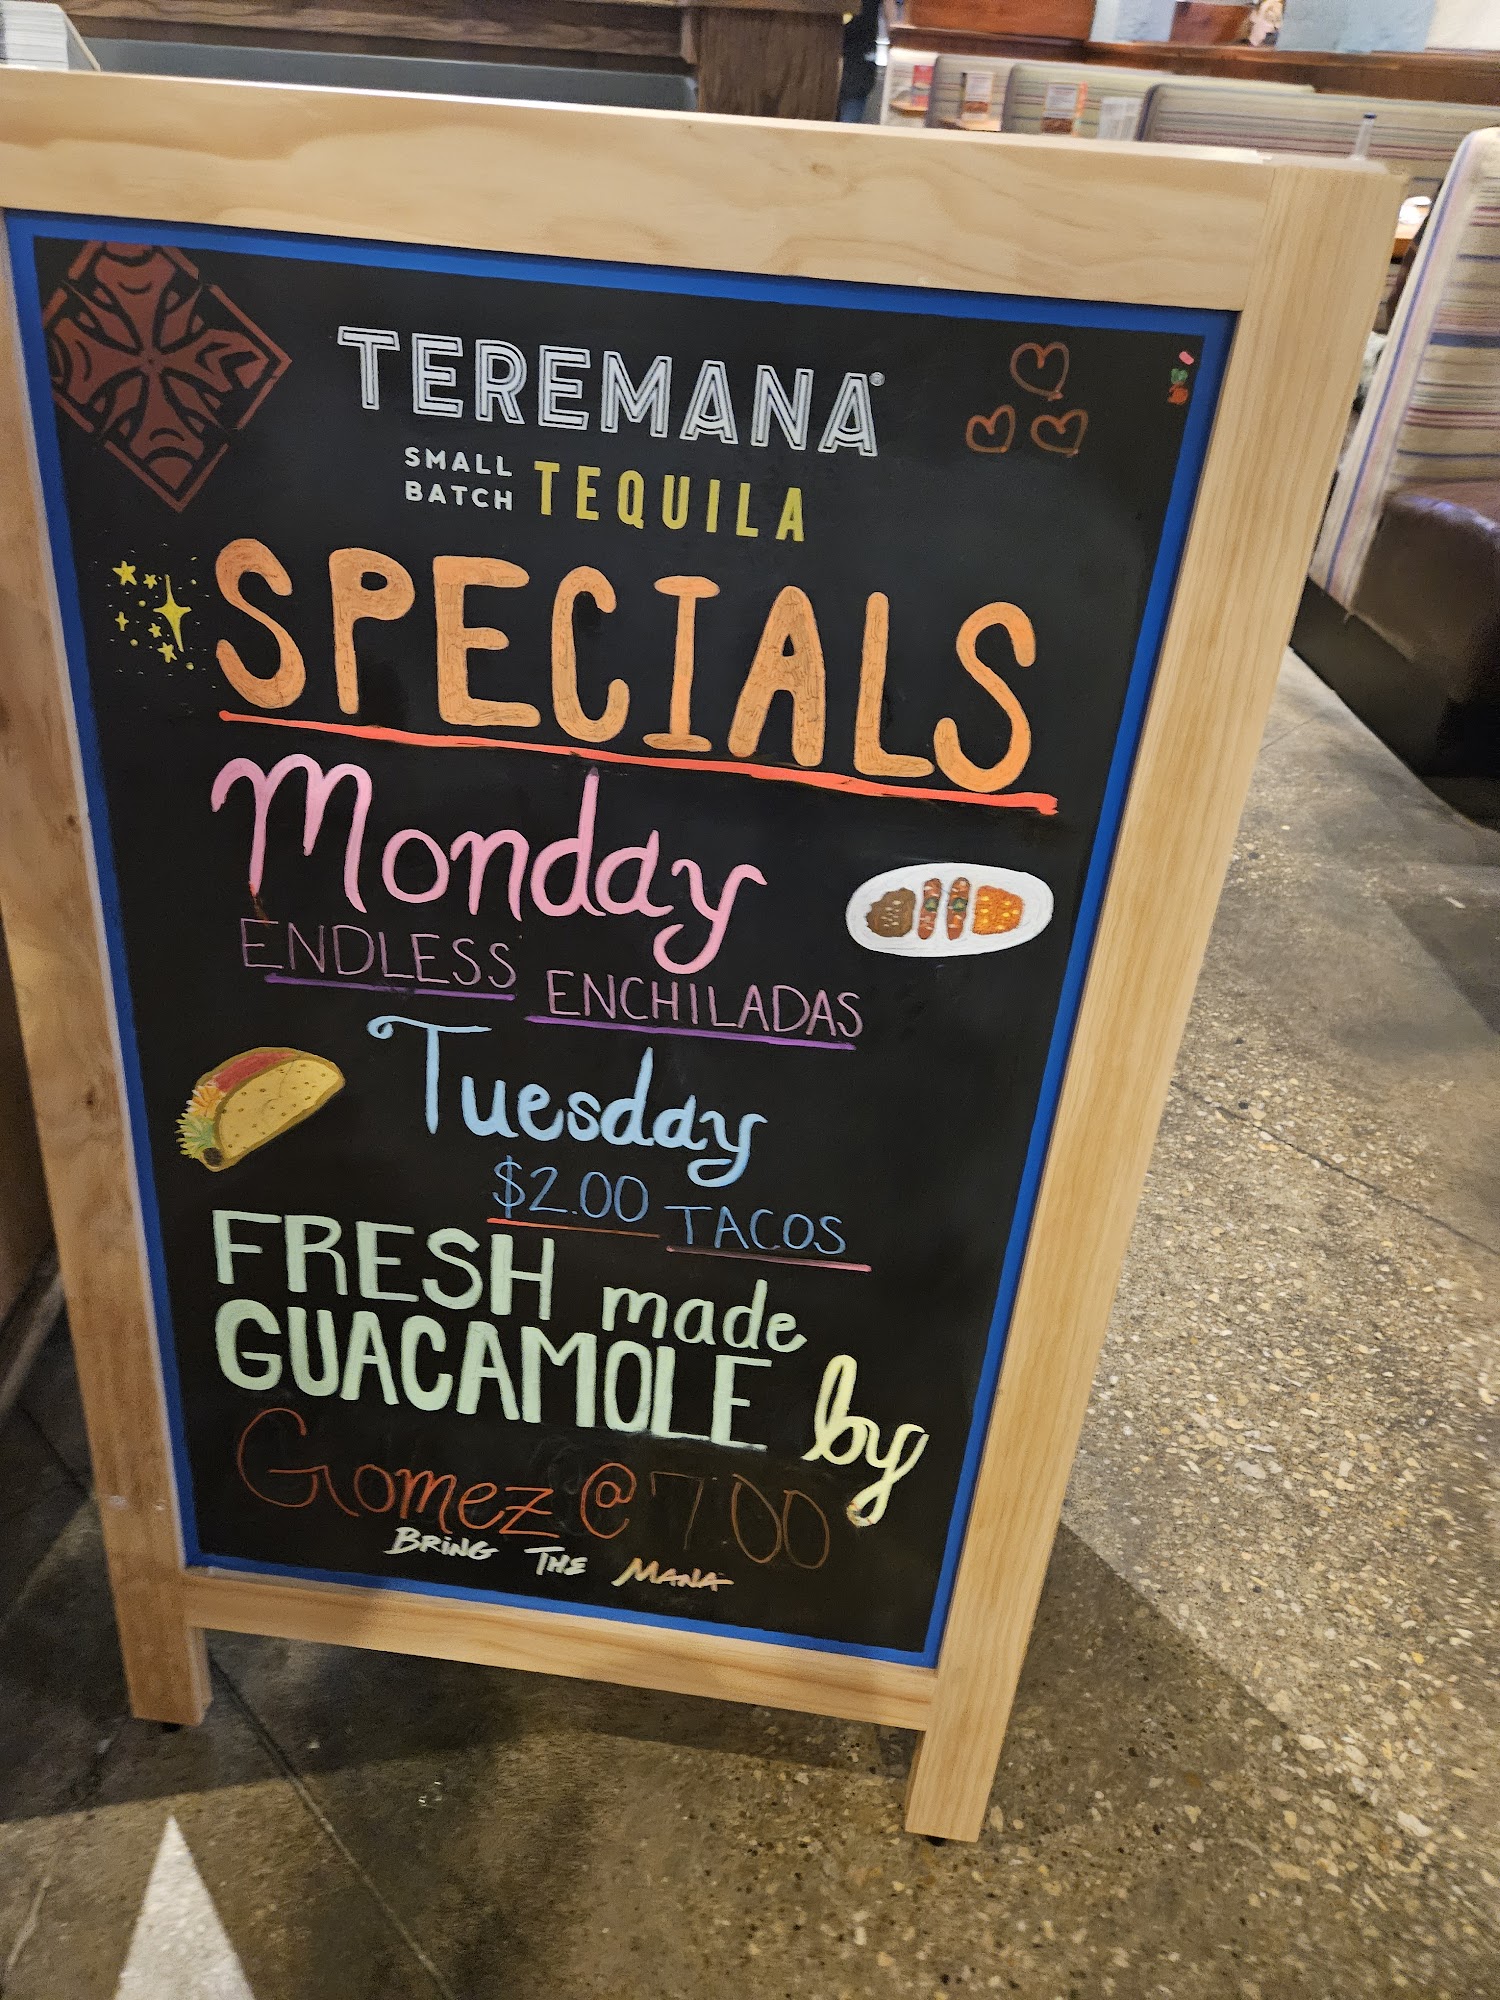 TEREMANA®
SMALL BATCH TEQUILA
SPECIALS
Monday
ENDLESS ENCHILADAS
Tuesday
$2.00 TACOS
FRESH made
GUACAMOLE by
Gomez @ 7:00
BRING THE MANA